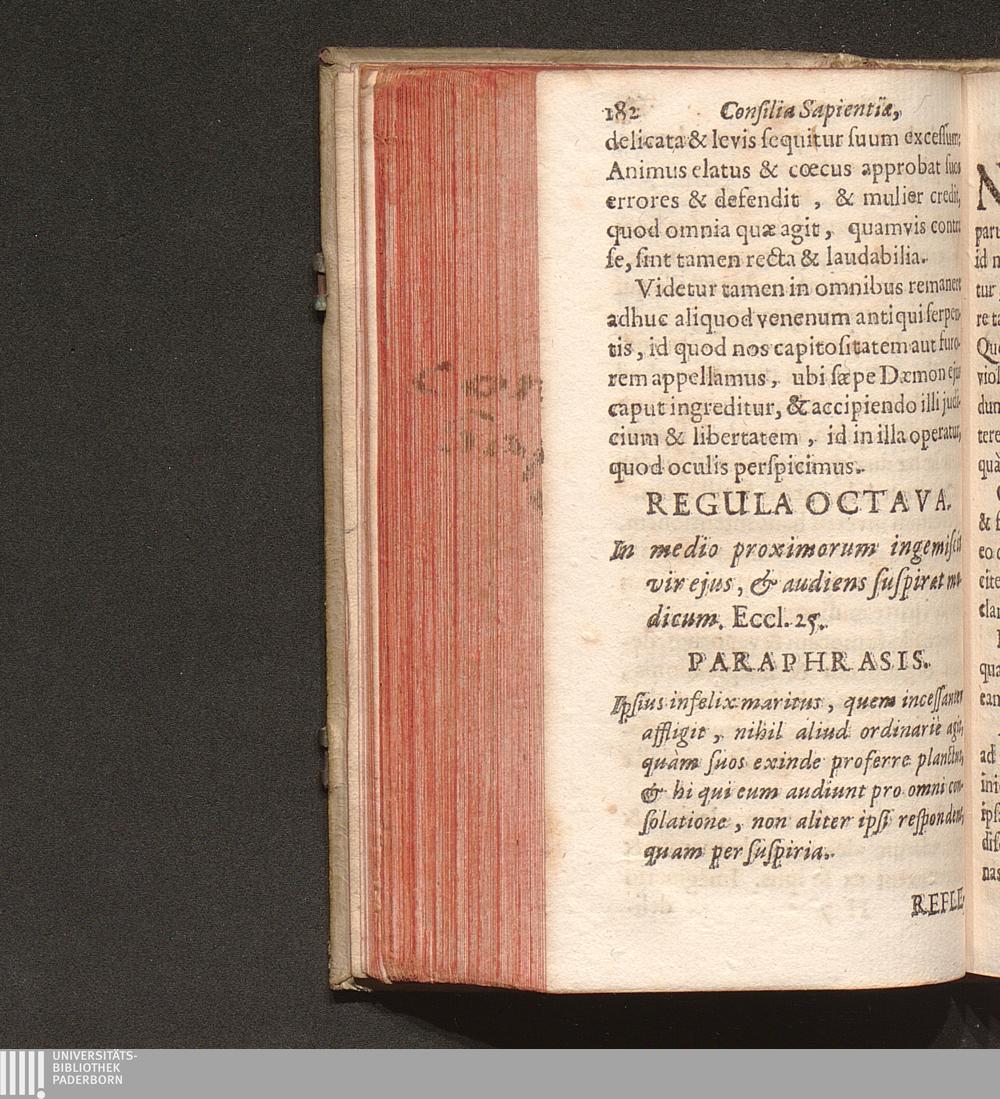 182 Conſilia Sapientiæ,
delicata & levis ſequitur ſuum exceſſum;
Animus elatus & cœcus approbat ſuos
errores & defendit , & mulier credit,
quod omnia quæ agit, quamvis contra
ſe, ſint tamen recta & laudabilia.
Videtur tamen in omnibus remanere
adhuc aliquod venenum antiqui ſerpen-
tis, id quod nos capitoſitatem aut furo-
rem appellamus, ubi ſæpe Dæmon ejus
caput ingreditur, & accipiendo illi judi-
cium & libertatem , id in illa operatur,
quod oculis perſpicimus.
REGULA OCTAVA.
In medio proximorum ingemiſcit
vir ejus, & audiens ſuſpirat mo-
dicum. Eccl. 25.
PARAPHRASIS.
Ipſius infelix maritus, quem inceſſanter
affligit, nihil aliud ordinariè agit,
quàm ſuos exinde proferre planctus,
& hi qui eum audiunt pro omni con-
ſolatione, non aliter ipſi reſpondent,
quam per ſuſpiria.
REFLE-
N
paru
id n
tur
re ta
Que
viol
dun
tere
quà
& f
eo c
cite
clar
qua
eam
ad
ini
ipſ
diſ
nas
Con
UNIVERSITÄTS-
BIBLIOTHEK
PADERBORN